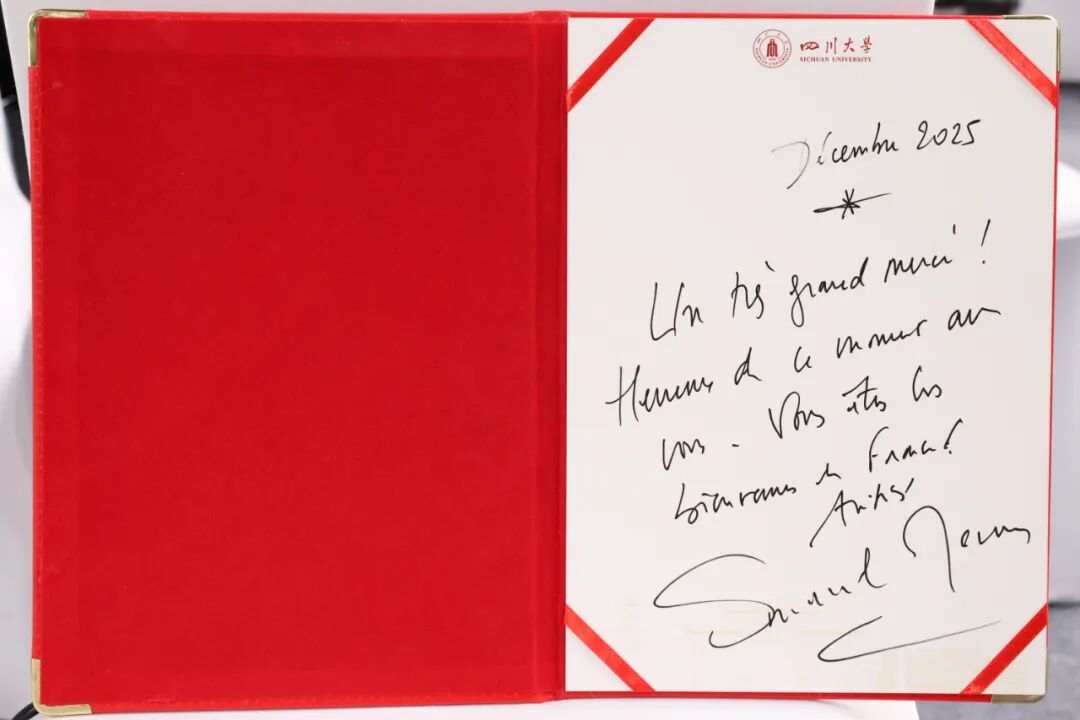 四川大学
SICHUAN UNIVERSITY
Décembre 2025
*
Un très grand merci !
Heureux de ce moment avec
vous. Vous êtes les
bienvenus en France !
Amitiés
Emmanuel Macron